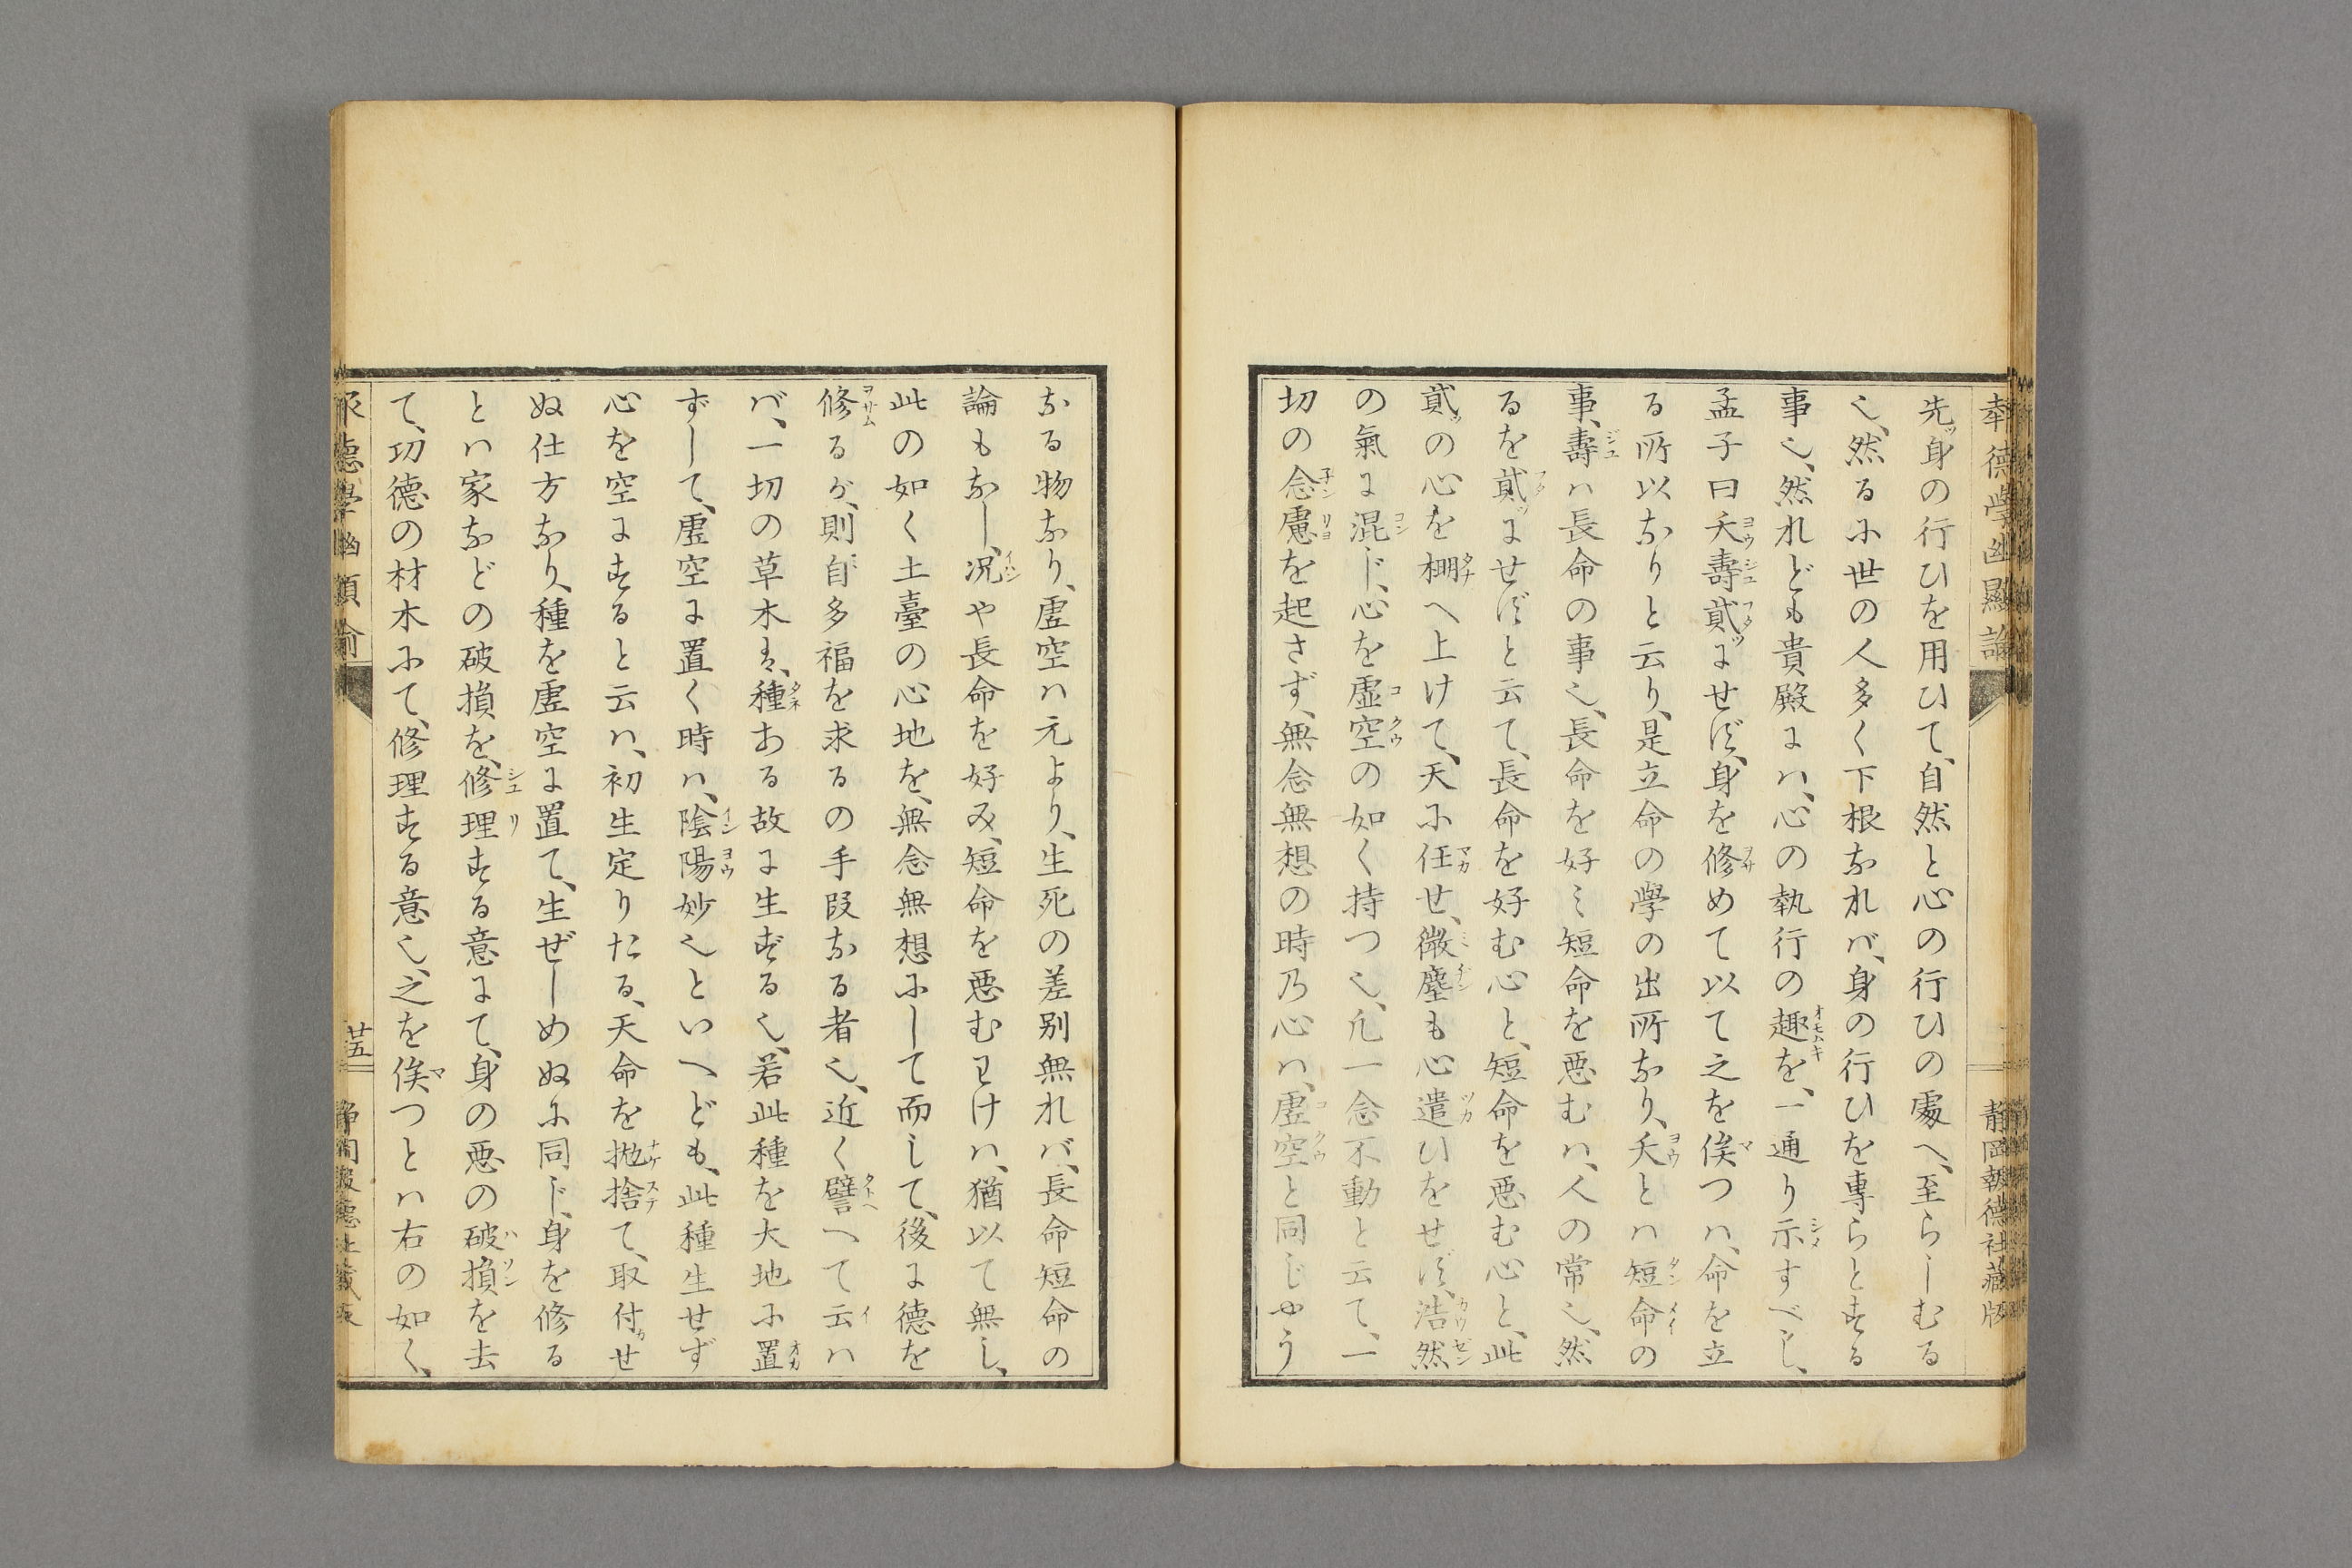 先ッ身の行ひを用ひて、自然と心の行ひの處へ、至らしむる
也、然るに世の人多く下根なれバ、身の行ひを專らとする
事也、然れども貴殿にハ、心の執行の趣を、一通り示すべし、
孟子曰夭壽貳ッにせず、身を修めて以て之を俟つハ、命を立
る所以なりと云り、是立命の學の出所なり、夭とハ短命の
事、壽ハ長命の事也、長命を好ミ短命を惡むハ、人の常也、然
るを貳ッにせずと云て、長命を好む心と、短命を惡む心と、此
貳ッの心を棚へ上けて、天に任せ、微塵も心遣ひをせず、浩然
の氣に混じ、心を虚空の如く持つ也、凡一念不動と云て、一
切の念慮を起さず、無念無想の時乃心ハ、虚空と同じやう
なる物なり、虚空ハ元より、生死の差別無れバ、長命短命の
論もなし、况や長命を好み、短命を惡むわけハ、猶以て無し、
此の如く土臺の心地を、無念無想にして而して、後に德を
修るが、則自多福を求るの手段なる者也、近く譬へて云ハ
バ、一切の草木は、種ある故に生ずる也、若此種を大地に置
ずして、虚空に置く時ハ、陰陽妙也といへども、此種生せず
心を空にすると云ハ、初生定りたる、天命を抛捨て、取付せ
ぬ仕方なり、種を虚空に置て、生ぜしめぬに同じ、身を修る
とハ家などの破損を、修理する意にて、身の惡の破損を去
て、功德の材木にて、修理する意也、之を俟つとハ右の如く、
廿五
静岡報德社藏版